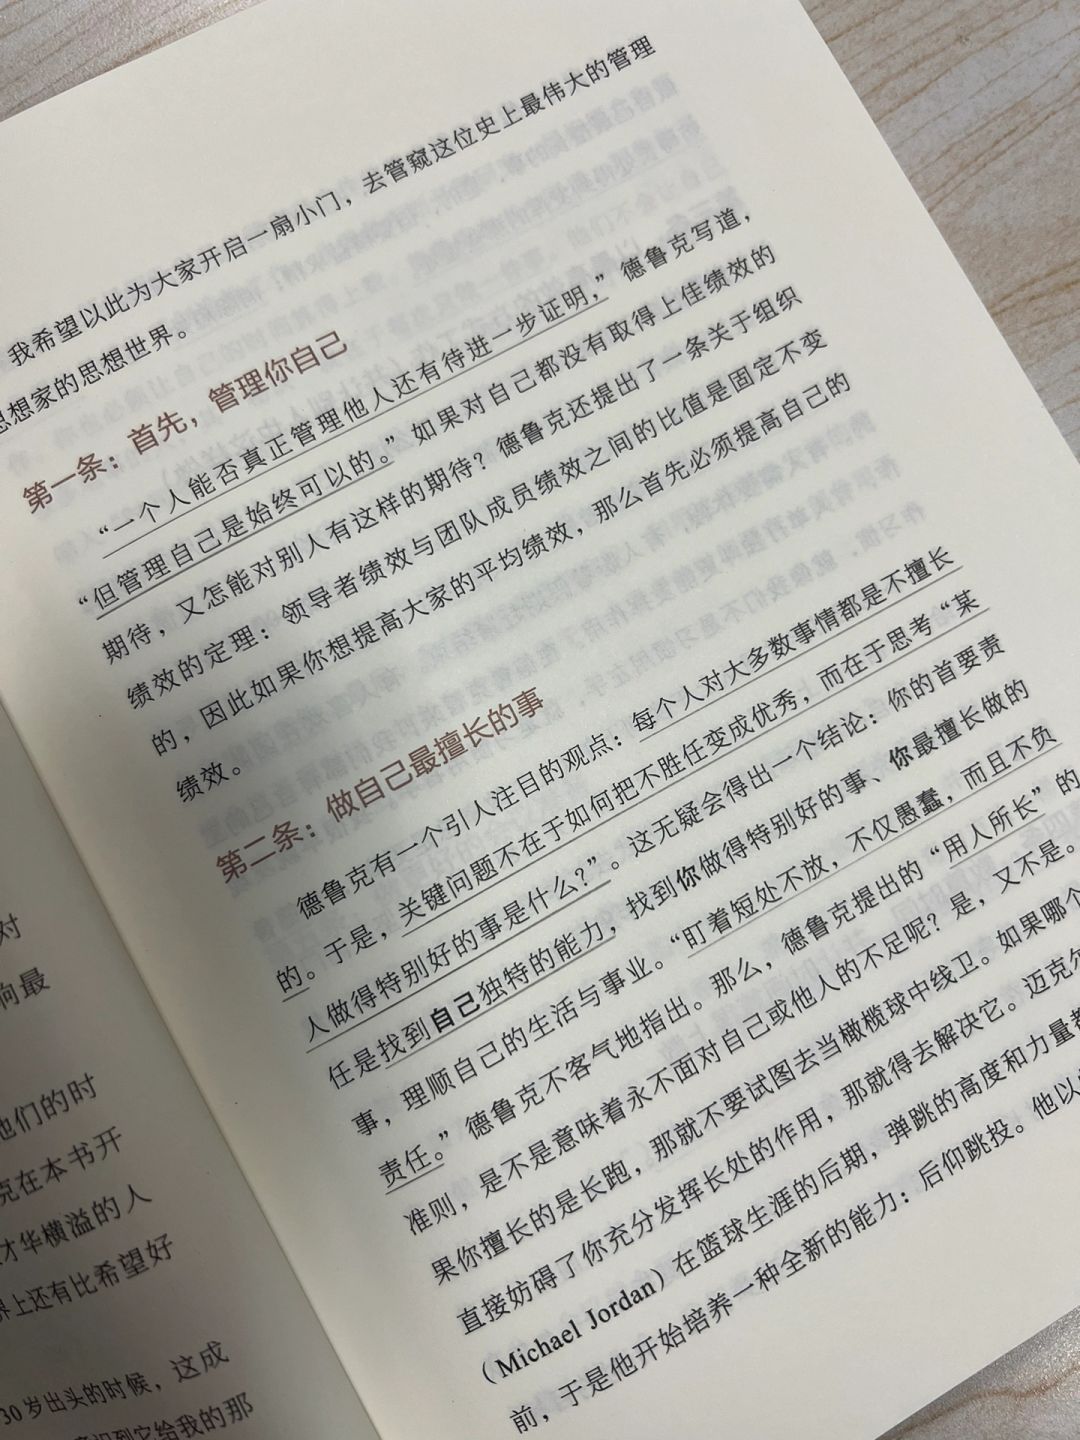 对
向最
他们的时
克在本书开
才华横溢的人
界上还有比希望好
30岁出头的时候，这成
意识到它给我的那
我希望以此为大家开启一扇小门，去管窥这位史上最伟大的管理
思想家的思想世界。
第一条：首先，管理你自己
“一个人能否真正管理他人还有待进一步证明，”德鲁克写道，
“但管理自己是始终可以的。”如果对自己都没有取得上佳绩效的
期待，又怎能对别人有这样的期待？德鲁克还提出了一条关于组织
绩效的定理：领导者绩效与团队成员绩效之间的比值是固定不变
的，因此如果你想提高大家的平均绩效，那么首先必须提高自己的
绩效。
第二条：做自己最擅长的事
德鲁克有一个引人注目的观点：每个人对大多数事情都是不擅长
的。于是，关键问题不在于如何把不胜任变成优秀，而在于思考“某
人做得特别好的事是什么？”。这无疑会得出一个结论：你的首要责
任是找到自己独特的能力，找到你做得特别好的事、你最擅长做的
事，理顺自己的生活与事业。“盯着短处不放，不仅愚蠢，而且不负
责任。”德鲁克不客气地指出。那么，德鲁克提出的“用人所长”的
准则，是不是意味着永不面对自己或他人的不足呢？是，又不是。
果你擅长的是长跑，那就不要试图去当橄榄球中线卫。如果哪个
直接妨碍了你充分发挥长处的作用，那就得去解决它。迈克尔
（Michael Jordan）在篮球生涯的后期，弹跳的高度和力量都
前，于是他开始培养一种全新的能力：后仰跳投。他以